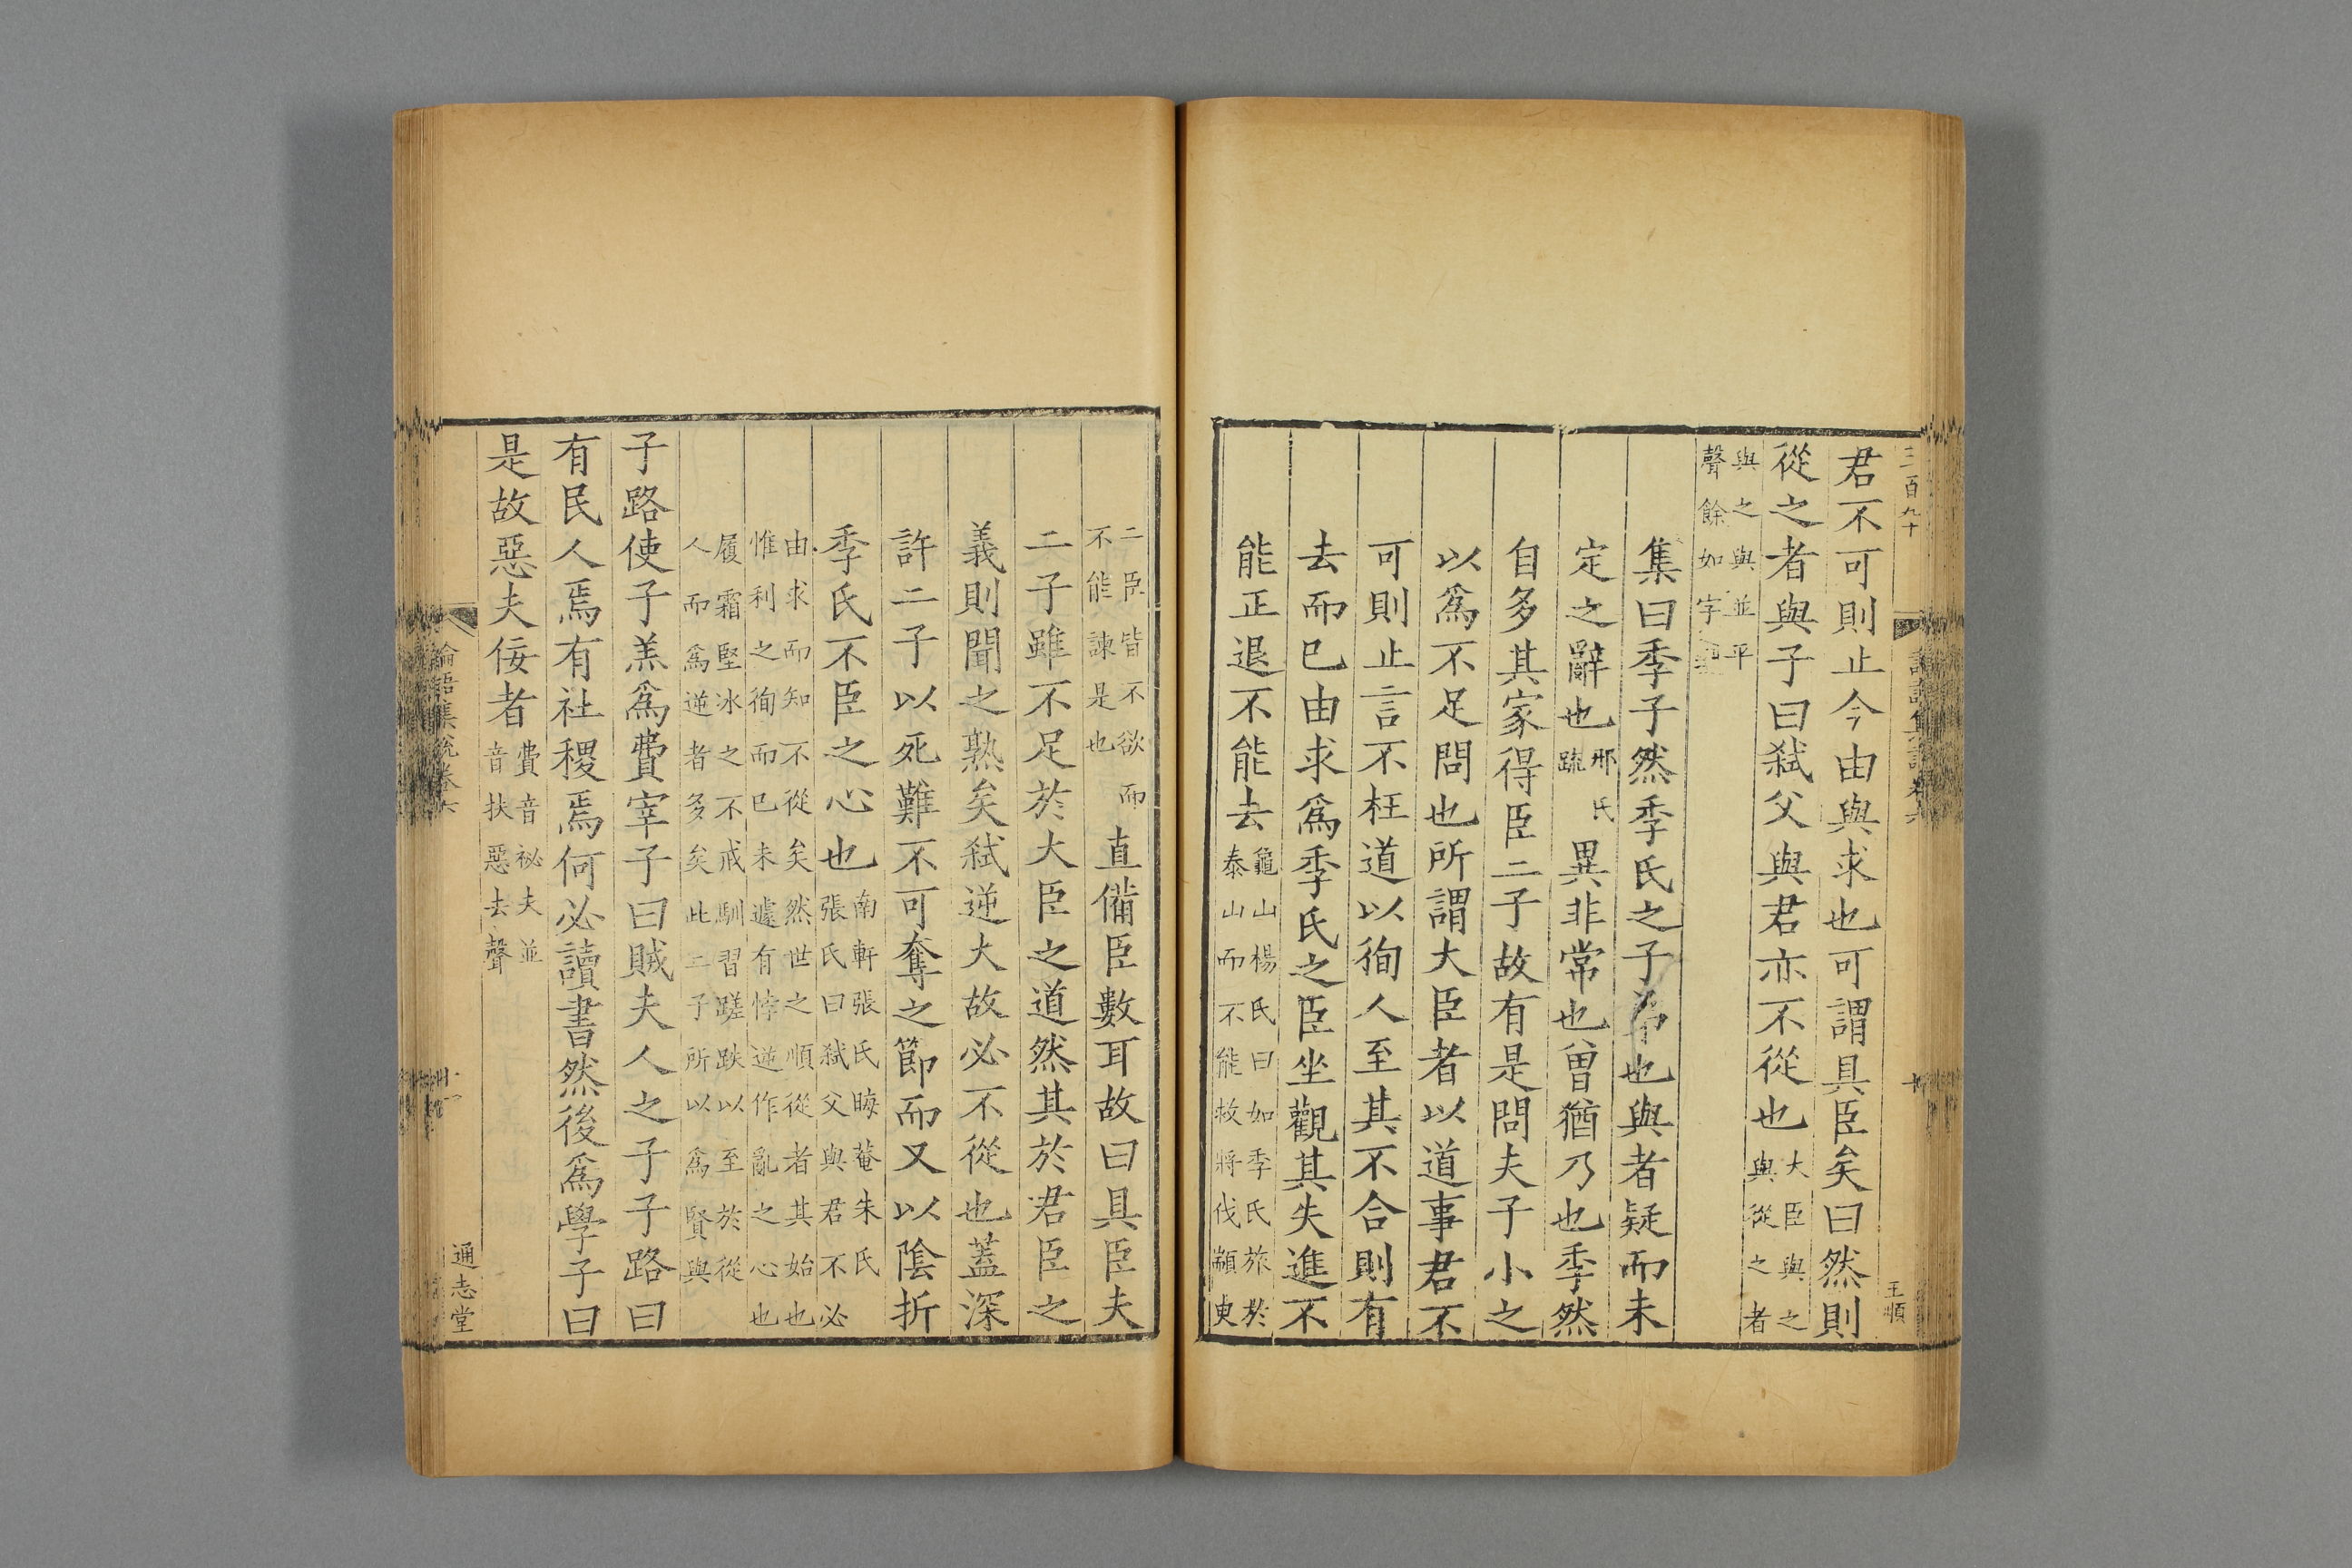 三百九十
王順
君不可則止今由與求也可謂具臣矣曰然則
從之者與子曰弑父與君亦不從也大臣與之與從之者
與之與並平聲餘如字
集曰季子然季氏之子弟也與者疑而未
定之辭也邢氏疏異非常也曾猶乃也季然
自多其家得臣二子故有是問夫子小之
以爲不足問也所謂大臣者以道事君不
可則止言不枉道以徇人至其不合則有
去而已由求爲季氏之臣坐觀其失進不
能正退不能去龜山楊氏曰如季氏旅於泰山而不能救將伐顓臾
二臣皆不欲而不能諫是也直備臣數耳故曰具臣夫
二子雖不足於大臣之道然其於君臣之
義則聞之熟矣弑逆大故必不從也蓋深
許二子以死難不可奪之節而又以陰折
季氏不臣之心也南軒張氏晦菴朱氏張氏曰弑父與君不必
由求而知不從矣然世之順從者其始也惟利之徇而已未遽有悖逆作亂之心也
履霜堅冰之不戒馴習蹉跌以至於從人而爲逆者多矣此二子所以爲賢與
子路使子羔爲費宰子曰賊夫人之子子路曰
有民人焉有社稷焉何必讀書然後爲學子曰
是故惡夫佞者費音祕夫並音扶惡去聲
論語集說卷六
十一
通志堂